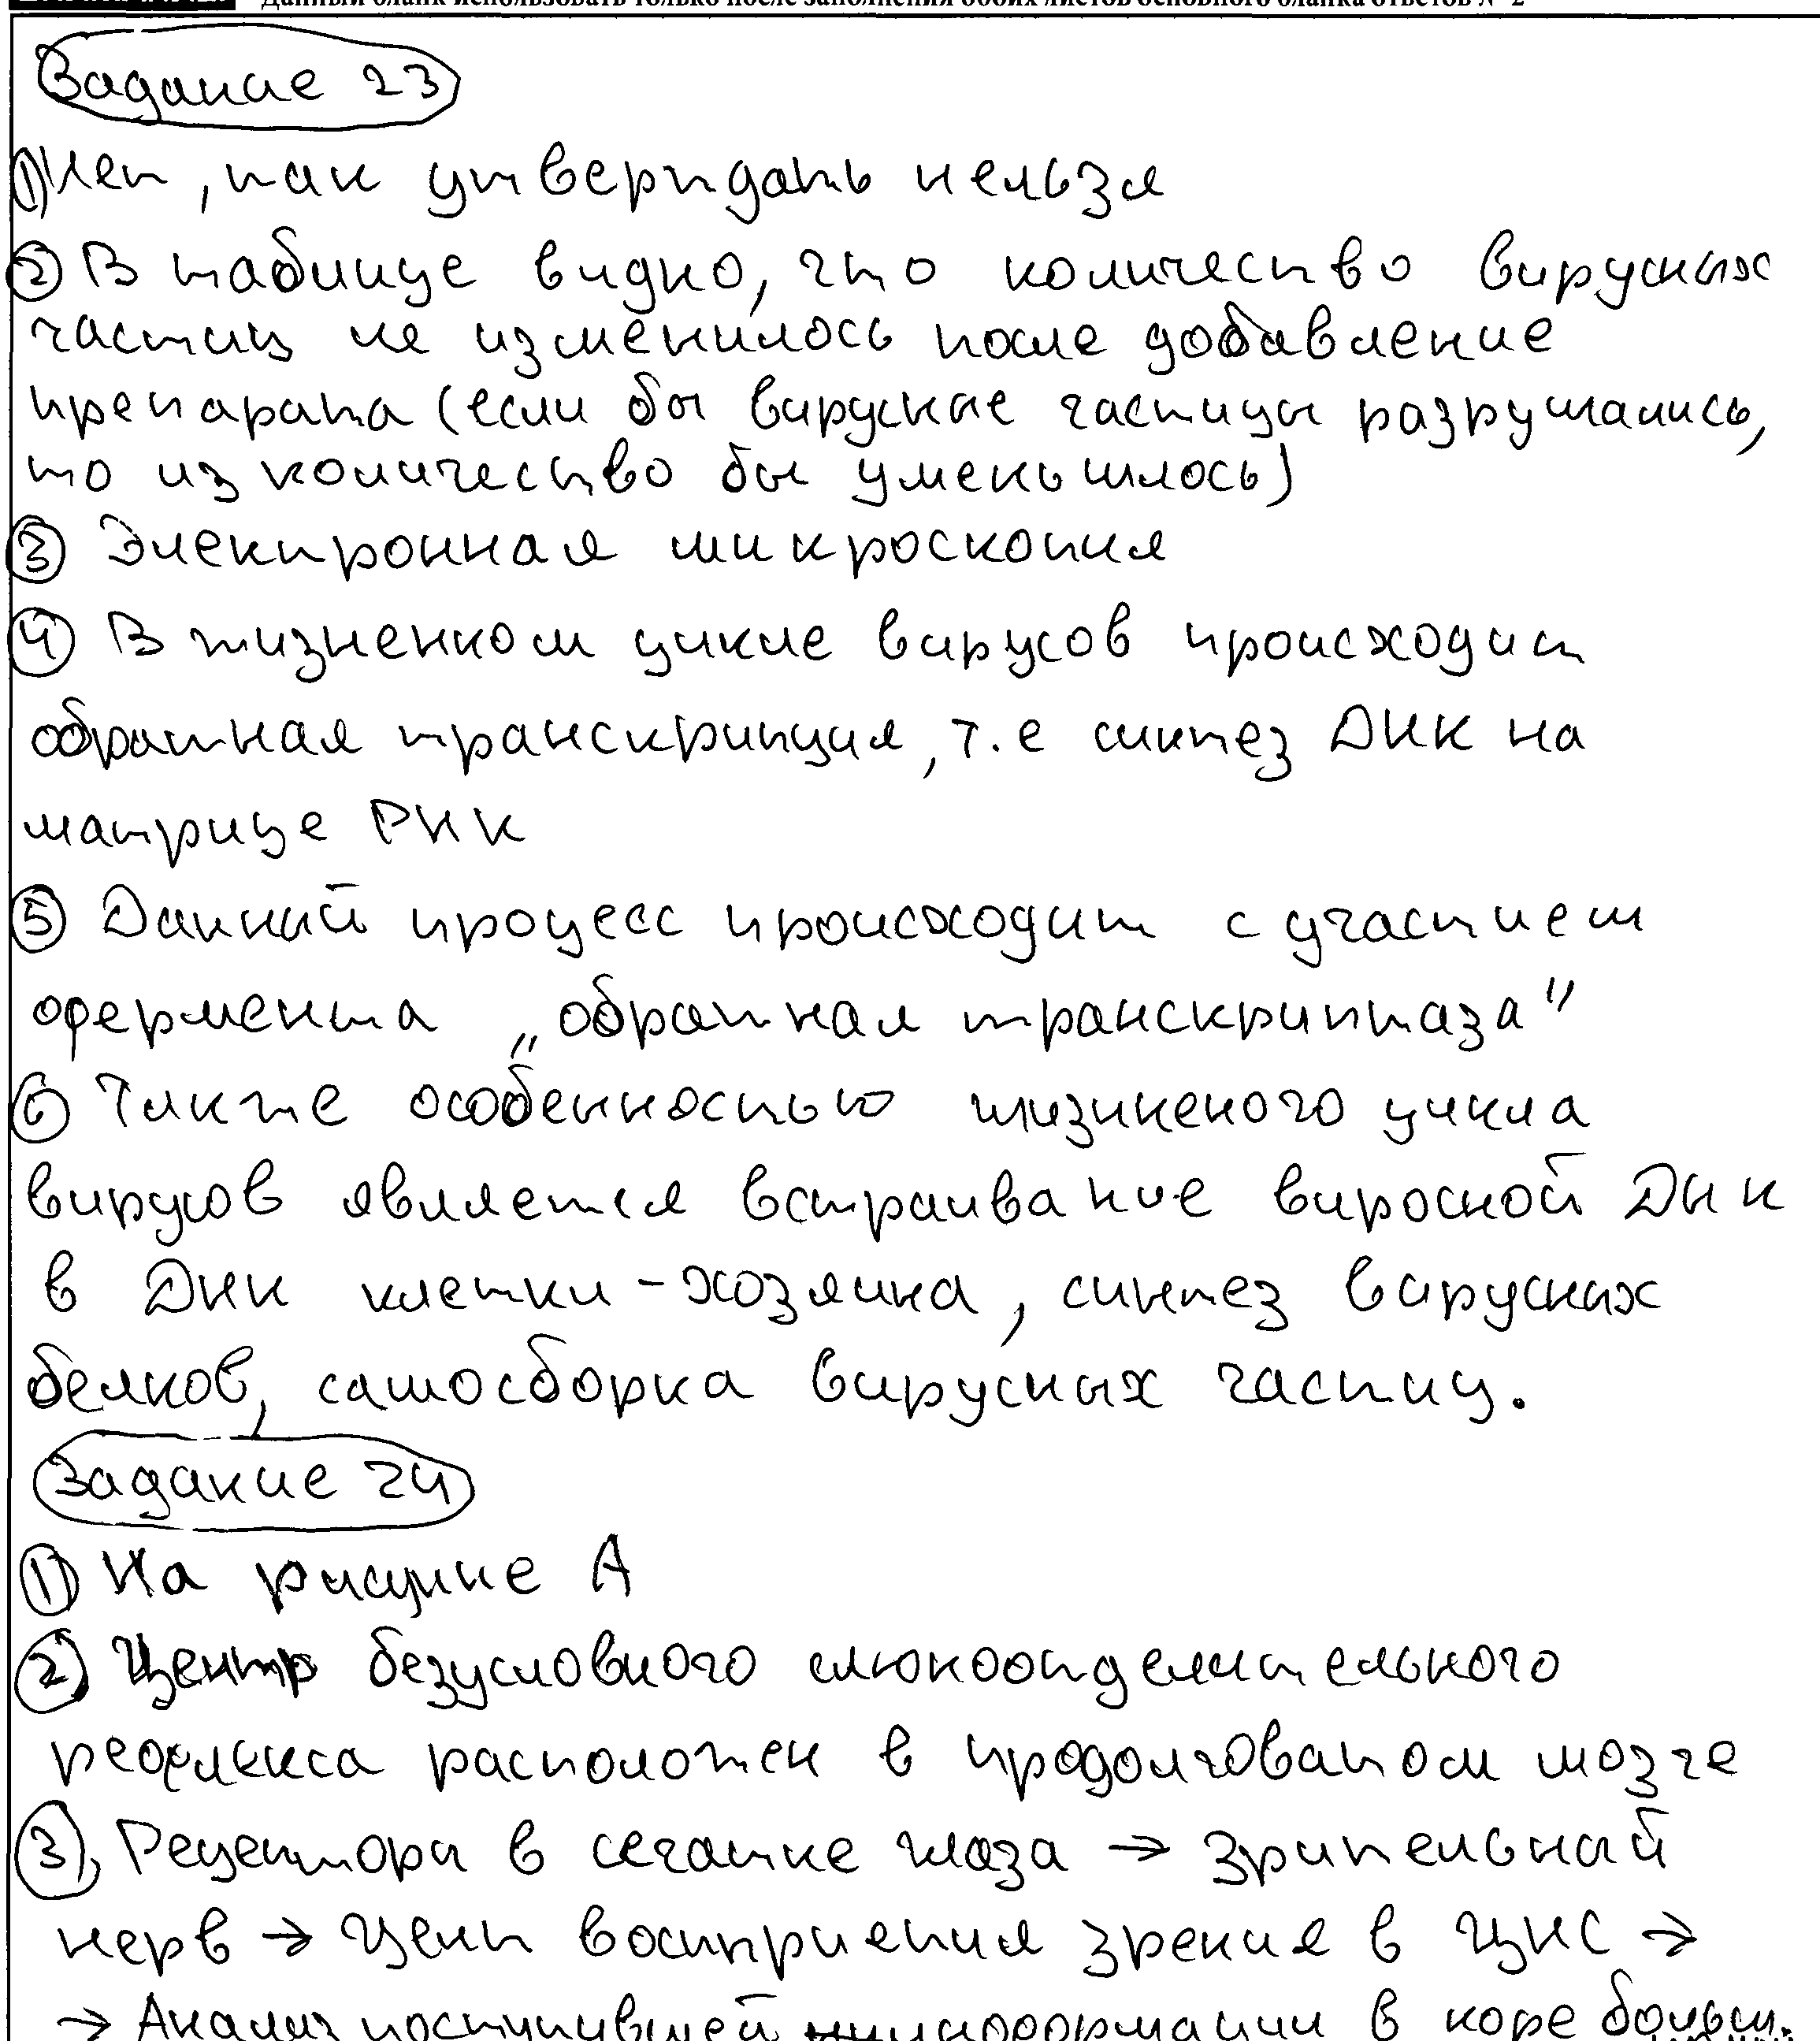 Данный бланк использовать только после заполнения обоих листов основного бланка ответов № 2
Задание 23
1) Нет, так утверждать нельзя
2) В таблице видно, что количество вирусных
частиц не изменилось после добавление
препарата (если бы вирусные частицы разрушались,
то из количество бы уменьшилось)
3) Электронная микроскопия
4) В жизненном цикле вирусов происходит
обратная транскрипция, т.е синтез ДНК на
матрице РНК
5) Данный процесс происходит с участием
фермента „обратная транскриптаза"
6) Также особенностью жизненого цикла
вирусов является встраивание виросной ДНК
в ДНК клетки-хозяина, синтез вирусных
белков, самосборка вирусных частиц.
Задание 24
1) На рисунке А
2) Центр безусловного слюноотделительного
рефлекса расположен в продолговатом мозге
3) Рецепторы в сетчатке глаза → Зрительный
нерв → Центр восприятия зрения в ЦНС →
→ Анализ поступившей информации в коре больш.